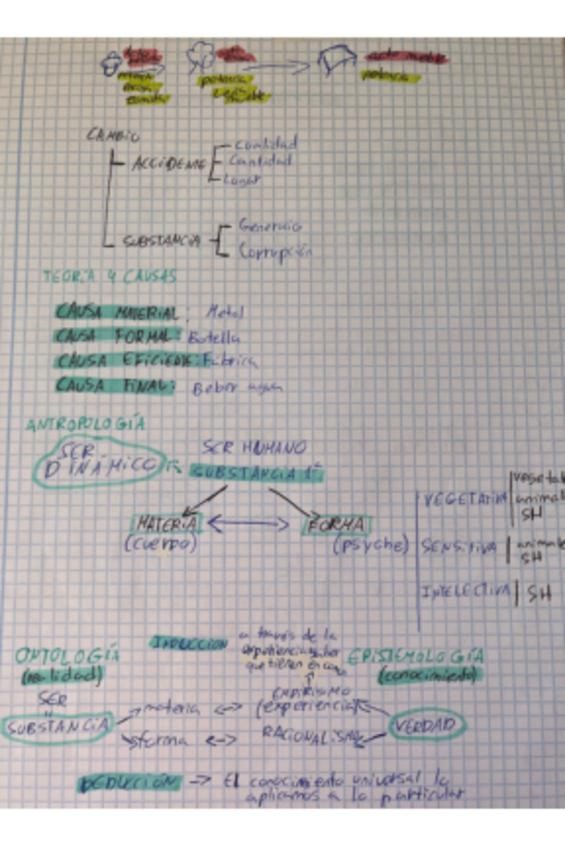 potencia
acto mueble
potencia
CAMBIO
ACCIDENTE
Cualidad
Cantidad
Lugar
SUBSTANCIA
Generació
Corrupción
TEORÍA 4 CAUSAS
CAUSA MATERIAL: Metal
CAUSA FORMAL: Botella
CAUSA EFICIENTE: Fábrica
CAUSA FINAL: Beber agua
ANTROPOLOGÍA
SER DINÁMICO
SER HUMANO
SUBSTANCIA 1ª
MATERIA
(cuerpo)
FORMA
(psyche)
VEGETATIVA
vegetal
animal
SH
SENSITIVA
animal
SH
INTELECTIVA
SH
INDUCCIÓN
a través de la
que tienen en
ONTOLOGÍA
(realidad)
SER
SUBSTANCIA
materia
forma
EPISTEMOLOGÍA
(conocimiento)
EMPIRISMO
(experiencia)
RACIONALISMO
VERDAD
DEDUCCIÓN -> El conocimiento universal lo
aplicamos a lo particular